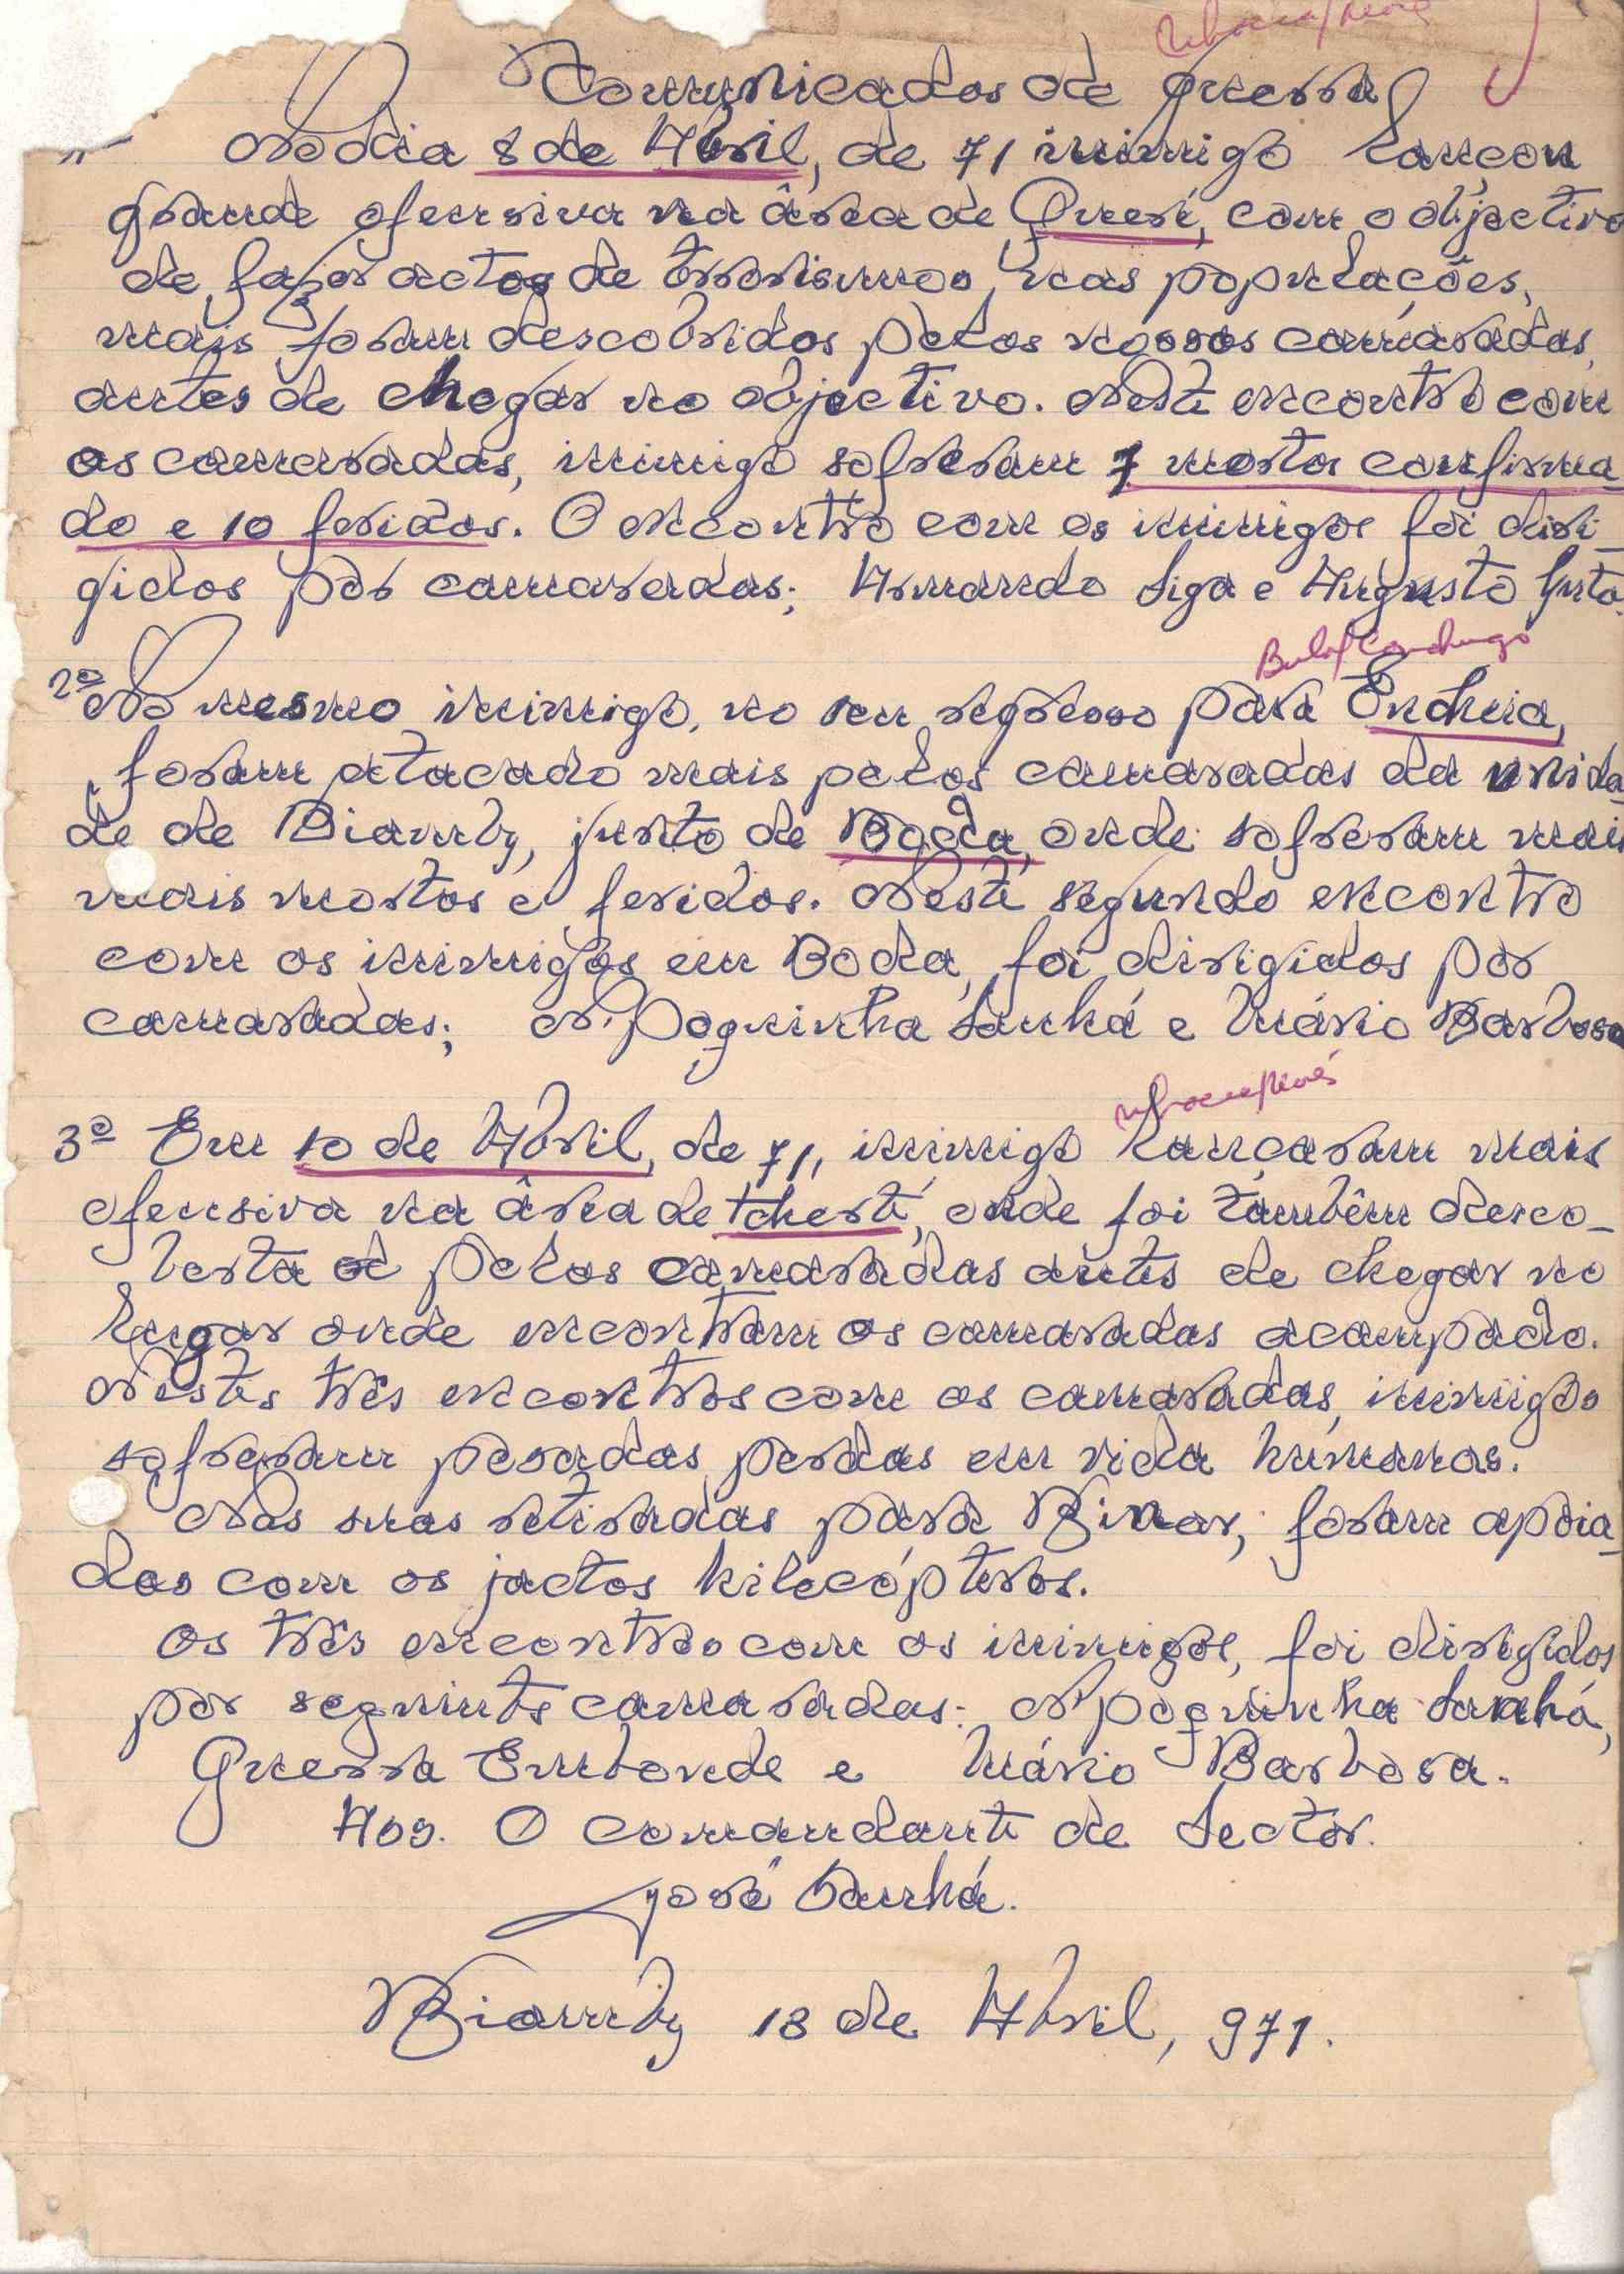 Comunicados de guerra
No dia 8 de Abril, de 71 inimigo lançou
grande ofensiva na ârea de Queré, com o objectivo
de fazer actos de terrorismo nas populações,
mais foram descobridos pelos nossos camaradas,
antes de chegar no objectivo. Neste encontro com
os camaradas, inimigo sofreram 7 morto confirma-
do e 10 feridos. O encontro com os inimigos foi diri-
gidos por camaradas; Armando Siga e Augusto
Bula/Canchungo
2º No mesmo inimigo, no seu regresso para Encheia,
foram atacado mais pelos camaradas da unida-
de de Biamby, junto de Boda, onde sofreram mais
mais mortos e feridos. Neste segundo encontro
com os inimigos em Boda, foi dirigidos por
camaradas; N'Poquinha Sanhá e Mário Barbosa
3º Em 10 de Abril, de 71, inimigo lançaram mais
ofensiva na ârea de tcherté, onde foi tambêm desco-
berta pelos camaradas antes de chegar no
lugar onde encontram os camaradas acampado.
Nestes três encontros com os camaradas, inimigos
sofreram pesadas perdas em vida humanas.
Nas suas retiradas para Binar, foram apoia-
dos com os jactos hilecópteros.
Os três encontros com os inimigos, foi dirigidos
por seguintes camaradas: N'poquinha Sanhá,
Guerra Embonde e Mário Barbosa.
O comandante de Sector.
José Sanhá.
Biamby 13 de Abril, 971.